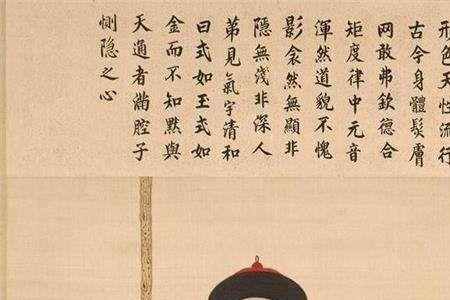 形色天性流行
古今身體髮膚
网敢弗欽德合
矩度律中元音
渾然道貌不愧
影衾然無顯非
隱無淺非深人
弟見氣宇清和
曰式如玉式如
金而不知默與
天通者滿腔子
惻隱之心